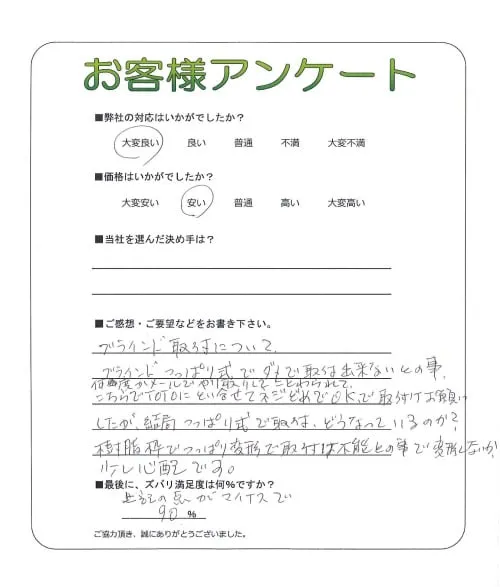 お客様アンケート
■弊社の対応はいかがでしたか？
大変良い 良い 普通 不満 大変不満
■価格はいかがでしたか？
大変安い 安い 普通 高い 大変高い
■当社を選んだ決め手は？
■ご感想・ご要望などをお書き下さい。
ブラインド取付について、
ブラインドつっぱり式でダメで取付出来ないとの事、
何度かメールでやり取りしてことわられて、
こちらでTOTOにとい合せてネジどめでOKで取付けお願い
したが、結局つっぱり式で取付、どうなっているのか？
樹脂枠でつっぱり変形で取付は不能との事で変形しないか、
少し心配です。
■最後に、ズバリ満足度は何％ですか？
上記の点がマイナスで
90 ％
ご協力頂き、誠にありがとうございました。